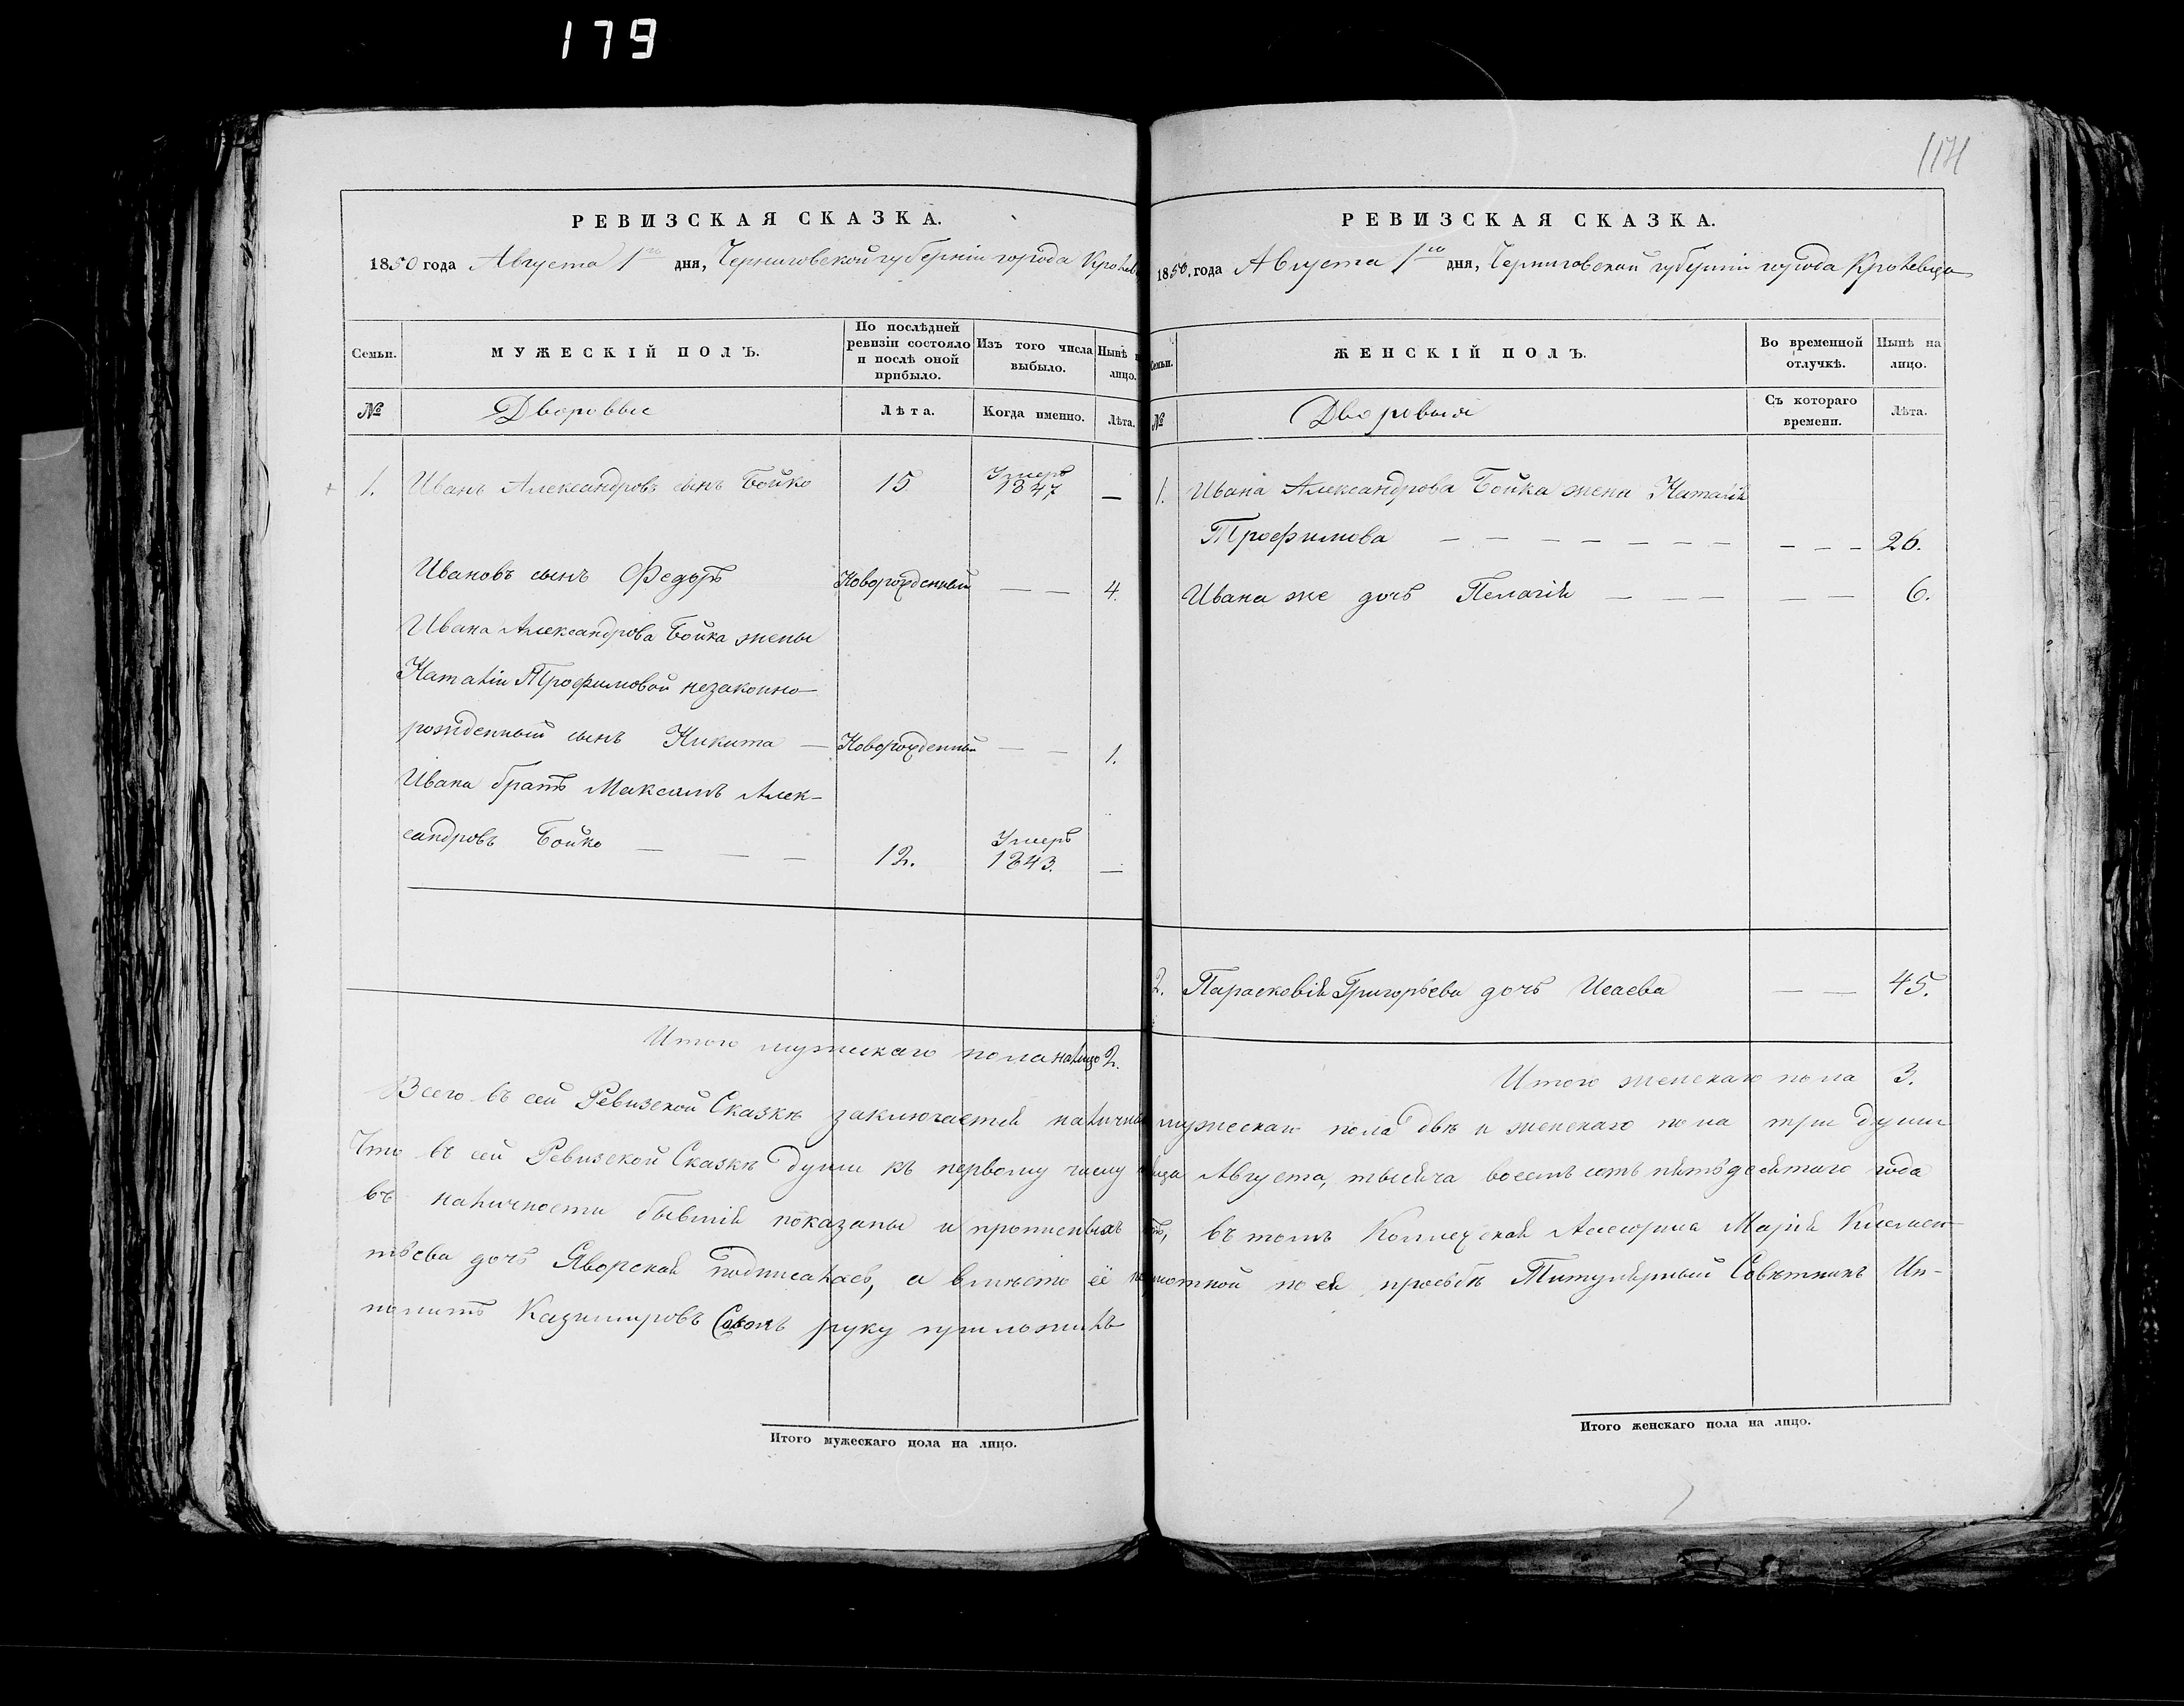 179
171
РЕВИЗСКАЯ СКАЗКА.
1850 года Августа 1го дня, Черниговской губерніи города Кролев
Семьи.
МУЖЕСКІЙ ПОЛЪ.
По послѣдней ревизіи состояло и послѣ оной прибыло.
Изъ того числа выбыло.
Нынѣ на лицо.
№
Дворовые
Лѣта.
Когда именно.
Лѣта.
1. Иванъ Александровъ сынъ Бойко 15 Умеръ 1847 —
Ивановъ сынъ Федоръ Новорожденный — — 4.
Ивана Александрова Бойка жены
Наталіи Трофимовой незаконно-
рожденный сынъ Никита — Новорожденный — — 1.
Ивана братъ Максимъ Алек-
сандровъ Бойко — — — 12. Умеръ 1843. —
Итого мужескаго пола налицо 2.
РЕВИЗСКАЯ СКАЗКА.
1850 года Августа 1го дня, Черниговской губерніи города Кролевца
Семьи.
ЖЕНСКІЙ ПОЛЪ.
Во временной отлучкѣ.
Нынѣ на лицо.
№
Дворовыя
Съ котораго времени.
Лѣта.
1. Ивана Александрова Бойка жена Наталія
Трофимова — — — — — — — — — — 26.
Ивана же дочь Пелагія — — — — — 6.
2. Парасковія Григорьева дочь Исаева — — 45.
Итого женскаго пола 3.
Всего въ сей Ревизской Сказкѣ заключается наличныхъ мужескаго пола двѣ и женскаго пола три души
Что въ сей Ревизской Сказкѣ души къ первому числу мѣсяца Августа, тысяча восемь сотъ пятьдесятаго года
въ наличности бывшія показаны и прописныхъ нѣтъ, въ томъ Коллежская Ассесорша Марія Климен-
тьева дочь Яворская подписалась, а вмѣсто её неграмотной по ея просьбѣ Титулярный Совѣтникъ Ип-
политъ Казимировъ руку приложилъ
Итого мужескаго пола на лицо.
Итого женскаго пола на лицо.